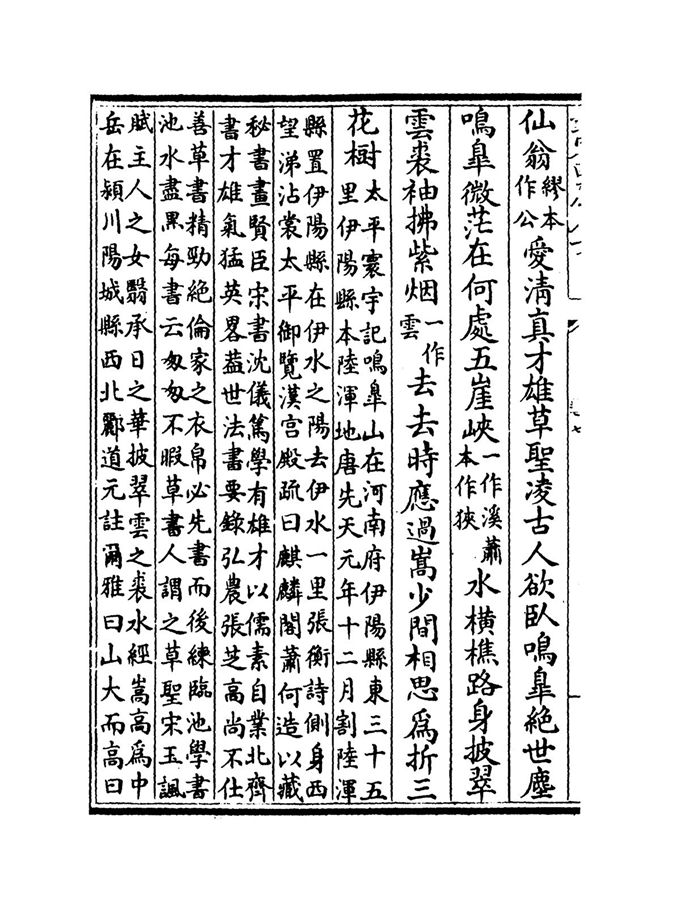 仙翁繆本作公愛清真才雄草聖凌古人欲臥鳴臯絶世塵
鳴臯微茫在何處五崖峽一作溪蕭本作狹水横樵路身披翠
雲裘袖拂紫烟一作雲去去時應過嵩少間相思爲折三
花樹
太平寰宇記鳴臯山在河南府伊陽縣東三十五
里伊陽縣本陸渾地唐先天元年十二月割陸渾
縣置伊陽縣在伊水之陽去伊水一里張衡詩側身西
望涕沾裳太平御覽漢宫殿疏曰麒麟閣蕭何造以藏
秘書畫賢臣宋書沈儀篤學有雄才以儒素自業北齊
書才雄氣猛英畧葢世法書要錄弘農張芝高尚不仕
善草書精勁絶倫家之衣帛必先書而後練臨池學書
池水盡黒每書云匆匆不暇草書人謂之草聖宋玉諷
賦主人之女翳承日之華披翠雲之裘水經嵩高爲中
岳在潁川陽城縣西北酈道元註爾雅曰山大而高曰